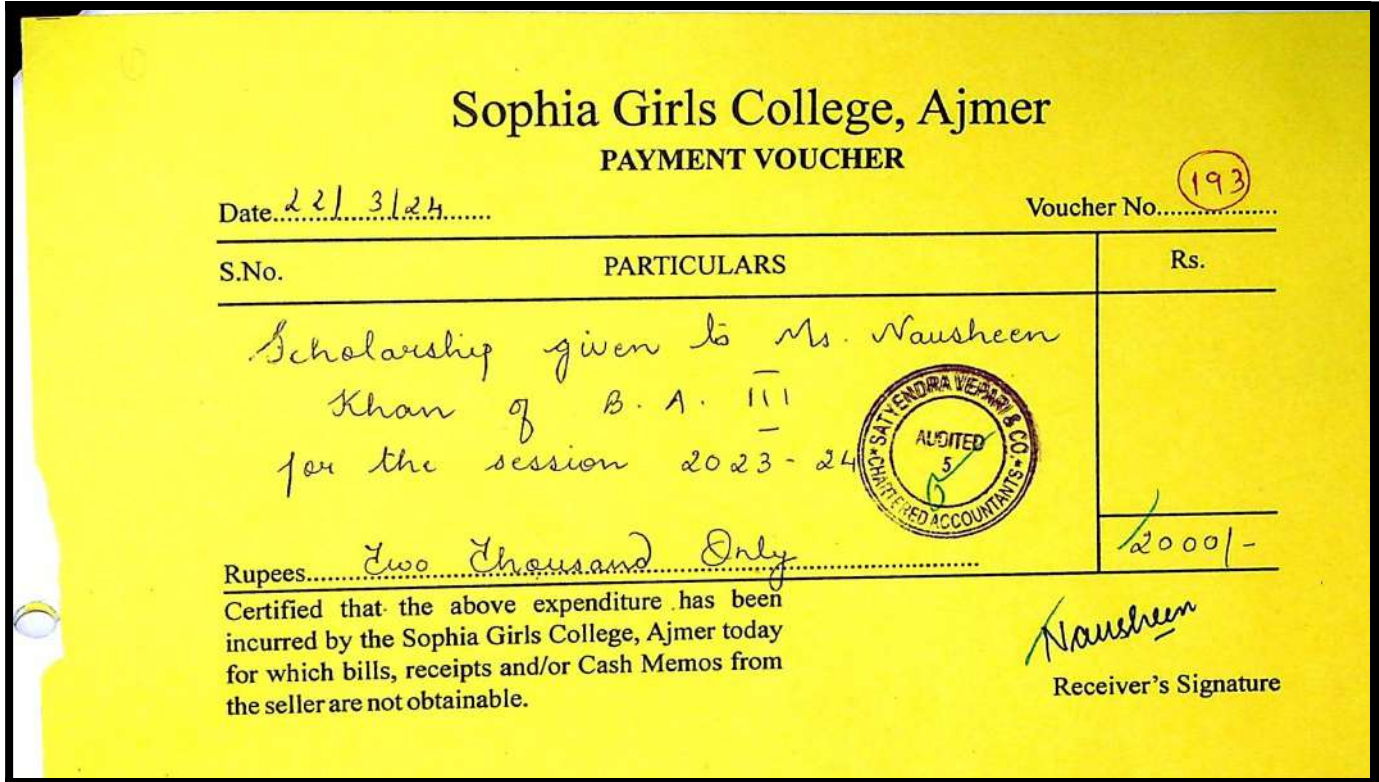 Sophia Girls College, Ajmer
PAYMENT VOUCHER
Date....22/3/24....... Voucher No....193....
S.No. PARTICULARS Rs.
Scholarship given to Ms. Nausheen
Khan of B. A. III
for the session 2023-24
SATYENDRA VEPARI & CO. * CHARTERED ACCOUNTANTS *
AUDITED
5
Rupees....... Two Thousand Only....... 2000/-
Certified that the above expenditure has been
incurred by the Sophia Girls College, Ajmer today
for which bills, receipts and/or Cash Memos from
the seller are not obtainable.
Nausheen
Receiver's Signature